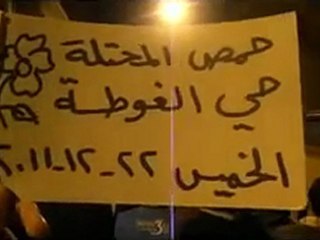 حمص المحتلة
حي الغوطة
الخميس ٢٢-١٢-٢٠١١